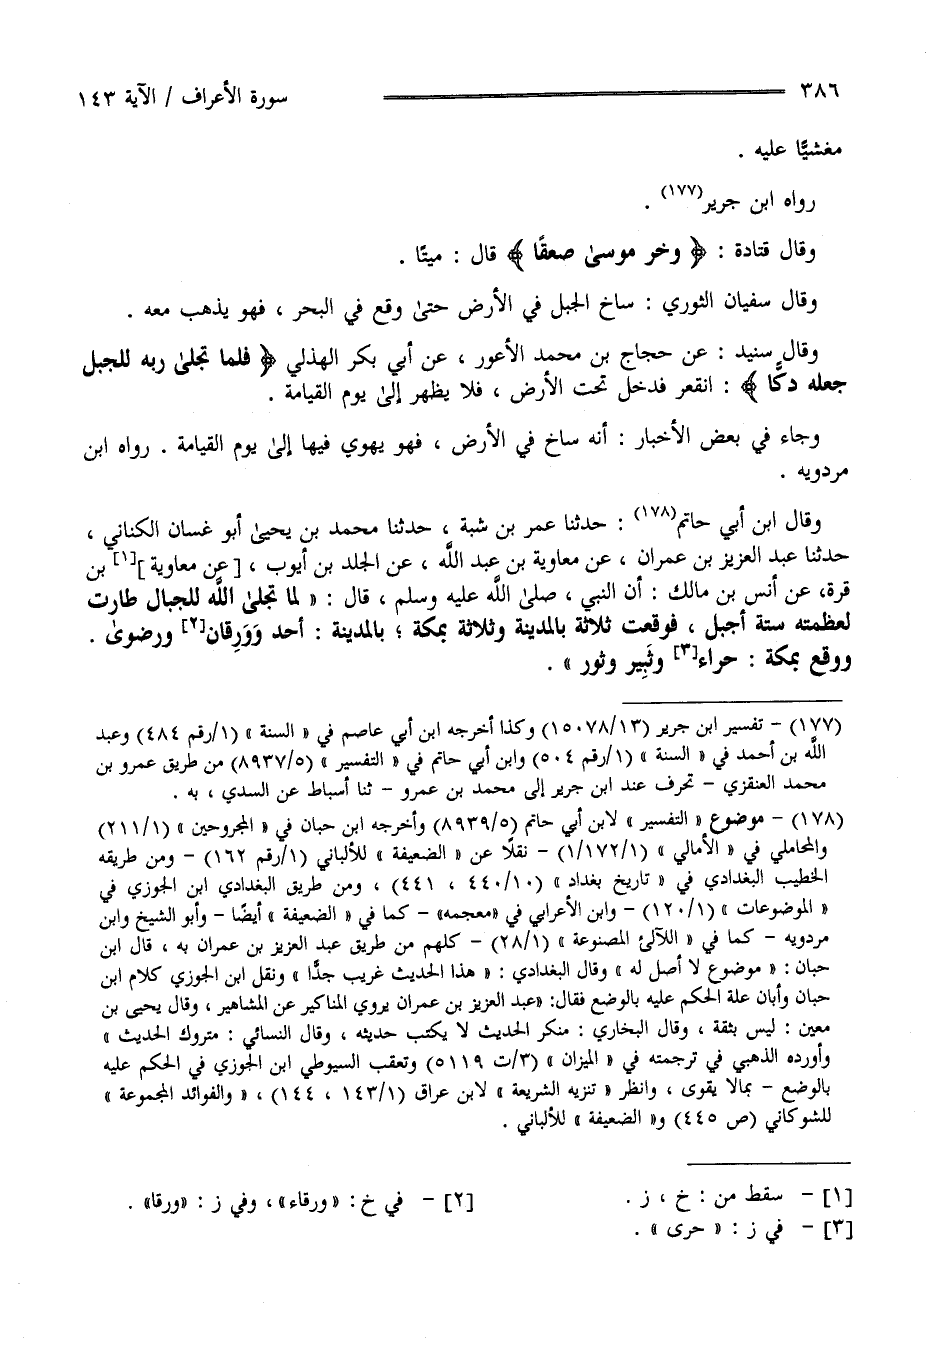 ٣٨٦ سورة الأعراف / الآية ١٤٣
مغشيًّا عليه .
رواه ابن جرير(١٧٧) .
وقال قتادة : ﴿ وخر موسىٰ صعقًا ﴾ قال : ميتًا .
وقال سفيان الثوري : ساخ الجبل في الأرض حتىٰ وقع في البحر ، فهو يذهب معه .
وقال سنيد : عن حجاج بن محمد الأعور ، عن أبي بكر الهذلي ﴿ فلما تجلىٰ ربه للجبل
جعله دكًّا ﴾ : انقعر فدخل تحت الأرض ، فلا يظهر إلىٰ يوم القيامة .
وجاء في بعض الأخبار : أنه ساخ في الأرض ، فهو يهوي فيها إلىٰ يوم القيامة . رواه ابن
مردويه .
وقال ابن أبي حاتم(١٧٨) : حدثنا عمر بن شبة ، حدثنا محمد بن يحيىٰ أبو غسان الكناني ،
حدثنا عبد العزيز بن عمران ، عن معاوية بن عبد اللَّه ، عن الجلد بن أيوب ، [ عن معاوية ][١] بن
قرة، عن أنس بن مالك : أن النبي ، صلىٰ اللَّه عليه وسلم ، قال : « لما تجلىٰ اللَّه للجبال طارت
لعظمته ستة أجبل ، فوقعت ثلاثة بالمدينة وثلاثة بمكة ؛ بالمدينة : أحد وَوَرِقان[٢] ورضوىٰ .
ووقع بمكة : حراء[٣] وثَبِير وثور » .
(١٧٧) – تفسير ابن جرير (١٥٠٧٨/١٣) وكذا أخرجه ابن أبي عاصم في « السنة » (١/رقم ٤٨٤) وعبد
اللَّه بن أحمد في « السنة » (١/رقم ٥٠٤) وابن أبي حاتم في « التفسير » (٨٩٣٧/٥) من طريق عمرو بن
محمد العنقزي – تحرف عند ابن جرير إلى محمد بن عمرو – ثنا أسباط عن السدي ، به .
(١٧٨) – موضوع « التفسير » لابن أبي حاتم (٨٩٣٩/٥) وأخرجه ابن حبان في « المجروحين » (٢١١/١)
والمحاملي في « الأمالي » (١/١٧٢/١) – نقلًا عن « الضعيفة » للألباني (١/رقم ١٦٢) – ومن طريقه
الخطيب البغدادي في « تاريخ بغداد » (٤٤٠/١٠ ، ٤٤١) ، ومن طريق البغدادي ابن الجوزي في
« الموضوعات » (١٢٠/١) – وابن الأعرابي في «معجمه» – كما في « الضعيفة » أيضًا – وأبو الشيخ وابن
مردويه – كما في « اللآلئ المصنوعة » (٢٨/١) – كلهم من طريق عبد العزيز بن عمران به ، قال ابن
حبان : « موضوع لا أصل له » وقال البغدادي : « هذا الحديث غريب جدًّا » ونقل ابن الجوزي كلام ابن
حبان وأبان علة الحكم عليه بالوضع فقال: «عبد العزيز بن عمران يروي المناكير عن المشاهير ، وقال يحيى بن
معين : ليس بثقة ، وقال البخاري : منكر الحديث لا يكتب حديثه ، وقال النسائي : متروك الحديث »
وأورده الذهبي في ترجمته في « الميزان » (٣/ت ٥١١٩) وتعقب السيوطي ابن الجوزي في الحكم عليه
بالوضع – بمالا يقوى ، وانظر « تنزيه الشريعة » لابن عراق (١٤٣/١ ، ١٤٤) ، « والفوائد المجموعة »
للشوكاني (ص ٤٤٥) و« الضعيفة » للألباني .
[١] – سقط من : خ ، ز . [٢] – في خ : «ورقاء» ، وفي ز : «ورقا» .
[٣] – في ز : « حرى » .